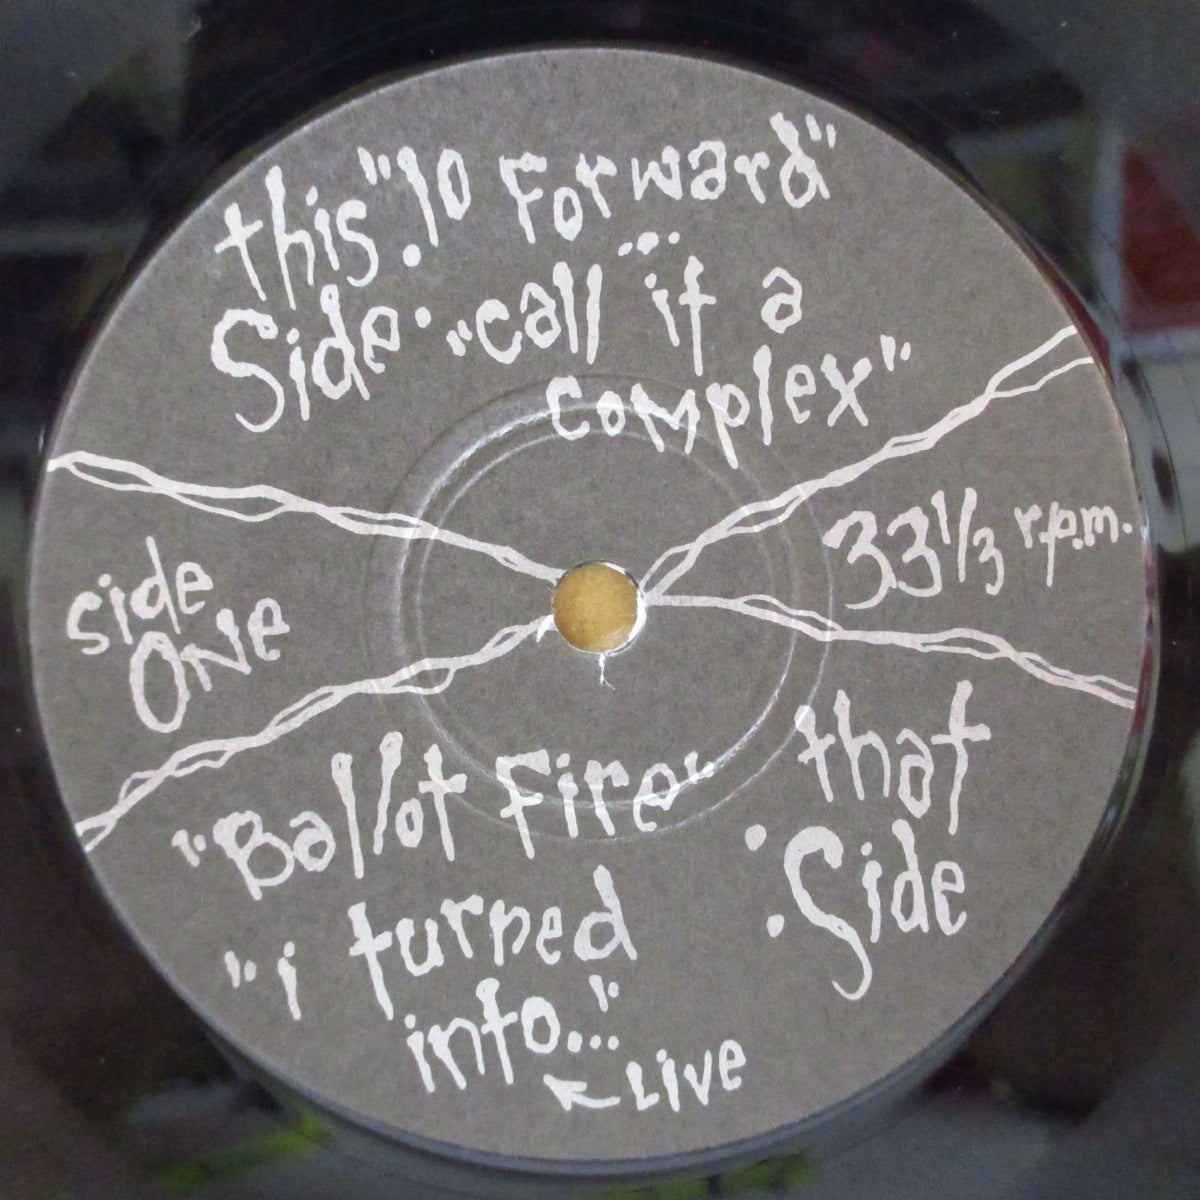 this "10 Forward"
Side: "call it a
complex"
33 1/3 r.p.m.
side
ONe
"Ballot Fire"
"i turned
into..."
LIVe
that
Side